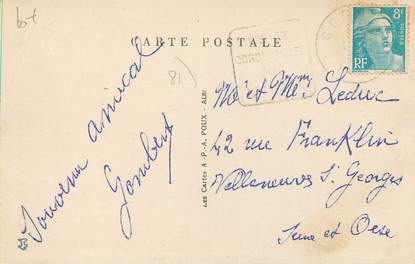 bt
CARTE POSTALE
8F
RF
81)
CORD
Souvenir amical
Gombert
Les Cartes A.P.-A. POUX - ALBI
Mr et Mme Leduc
42 rue Franklin
Villeneuve St Georges
Seine et Oise